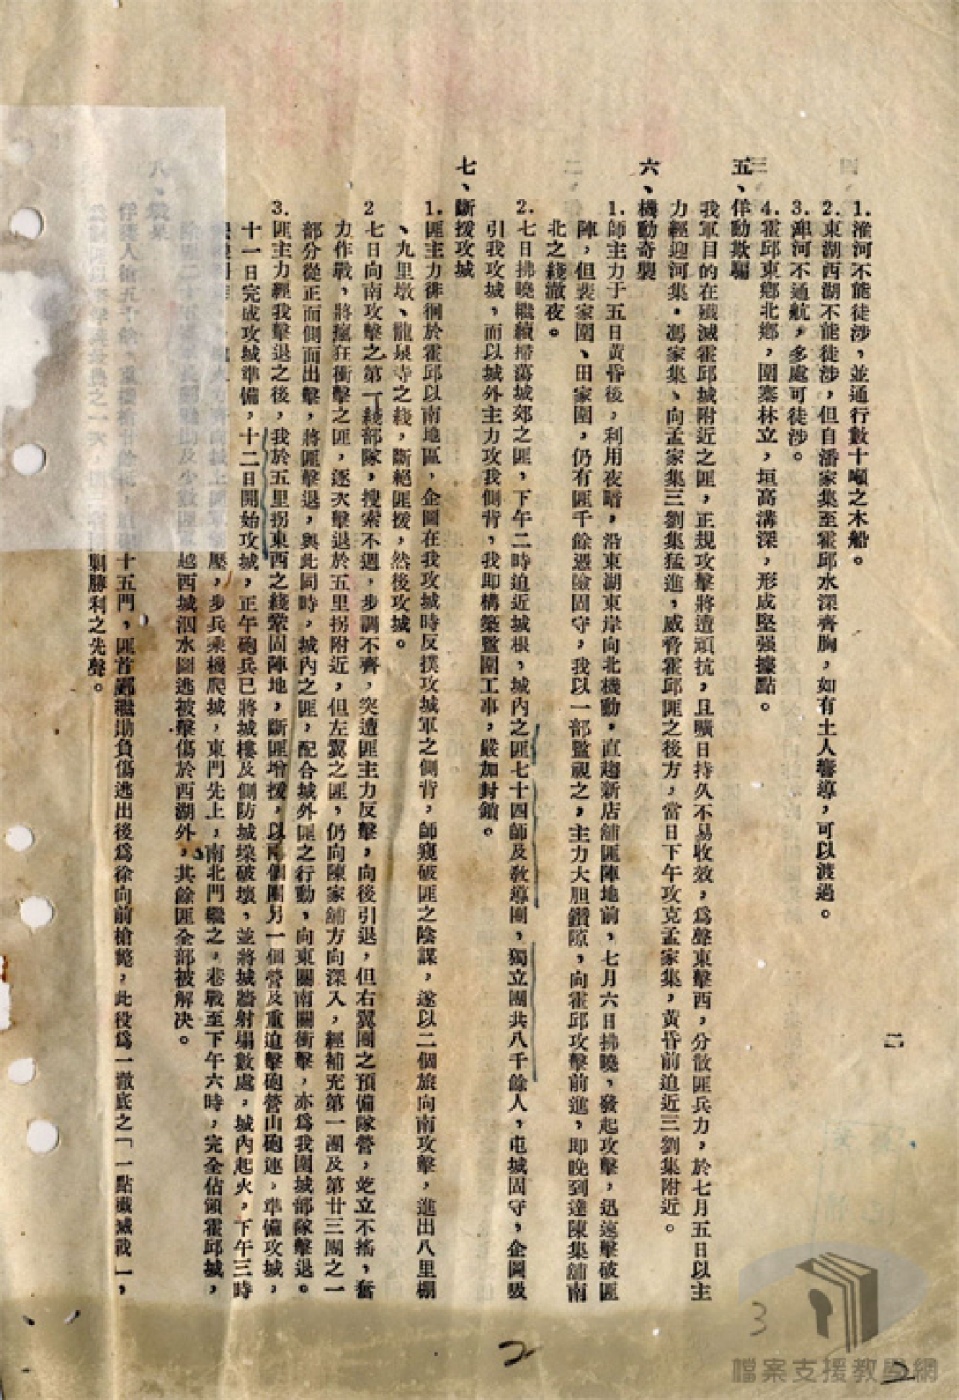 二
1. 淮河不能徒涉，並通行數十噸之木船。
2. 東湖西湖不能徒涉，但自潘家集至霍邱水深齊胸，如有土人嚮導，可以渡過。
3. 淠河不通航，多處可徒涉。
4. 霍邱東鄉北鄉，圍寨林立，垣高溝深，形成堅强據點。
五、佯動欺騙
我軍目的在殲滅霍邱城附近之匪，正規攻擊將遭頑抗，且曠日持久不易收效，爲聲東擊西，分散匪兵力，於七月五日以主
力經迎河集，馮家集、向孟家集三劉集猛進，威脅霍邱匪之後方，當日下午攻克孟家集，黃昏前迫近三劉集附近。
六、機動奇襲
1. 師主力于五日黃昏後，利用夜暗，沿東湖東岸向北機動，直趨新店舖匪陣地前，七月六日拂曉，發起攻擊，迅速擊破匪
陣，但裴家圍、田家圍，仍有匪千餘憑險固守，我以一部監視之，主力大胆鑽隙，向霍邱攻擊前進，即晚到達陳集舖南
北之綫澈夜。
2. 七日拂曉繼續掃蕩城郊之匪，下午二時迫近城根，城內之匪七十四師及敎導團，獨立團共八千餘人，屯城固守，企圖吸
引我攻城，而以城外主力攻我側背，我即構築監圍工事，嚴加封鎖。
七、斷援攻城
1. 匪主力徘徊於霍邱以南地區，企圖在我攻城時反撲攻城軍之側背，師窺破匪之陰謀，遂以二個旅向南攻擊，進出八里棚
、九里墩、龍泉寺之綫，斷絕匪援，然後攻城。
2 七日向南攻擊之第一綫部隊，搜索不週，步調不齊，突遭匪主力反擊，向後引退，但右翼團之預備隊營，屹立不搖，奮
力作戰，將瘋狂衝擊之匪，逐次擊退於五里拐附近，但左翼之匪，仍向陳家舖方向深入，經補充第一團及第廿三團之一
部分從正面側面出擊，將匪擊退，與此同時，城內之匪，配合城外匪之行動，向東關南關衝擊，亦爲我圍城部隊擊退。
3. 匪主力經我擊退之後，我於五里拐東西之綫鞏固陣地，斷匪增援，以兩個團另一個營及重迫擊砲營山砲連，準備攻城，
十一日完成攻城準備，十二日開始攻城，正午砲兵已將城樓及側防城垛破壞，並將城牆射塌數處，城內起火，下午三時
壓，步兵乘機爬城，東門先上，南北門繼之，巷戰至下午六時，完全佔領霍邱城，
越西城泅水圖逃被擊傷於西湖外，其餘匪全部被解决。
八、戰果
十五門，匪首鄺繼勛負傷逃出後爲徐向前槍斃，此役爲一澈底之「一點殲滅戰」，
剿勝利之先聲。
2
3
2
檔案支援教學網